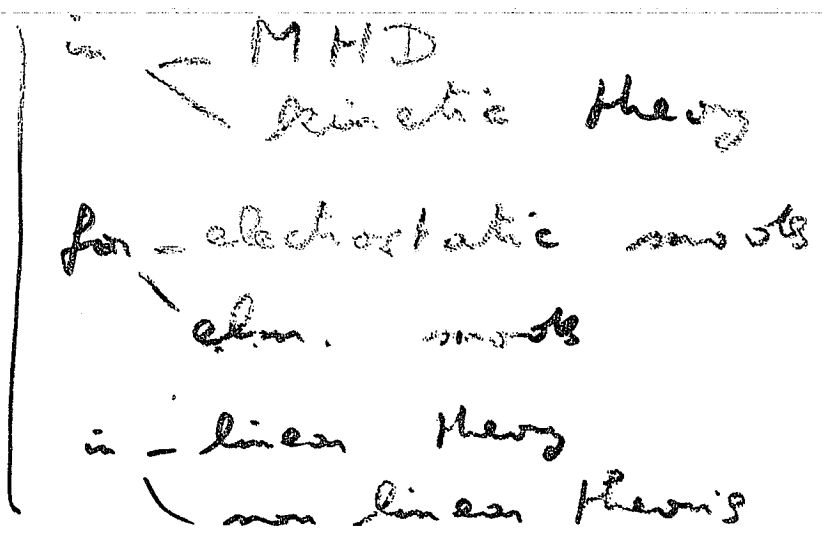 in - MHD
kinetic theory
for - electrostatic modes
elm. modes
in - linear theory
non linear theory